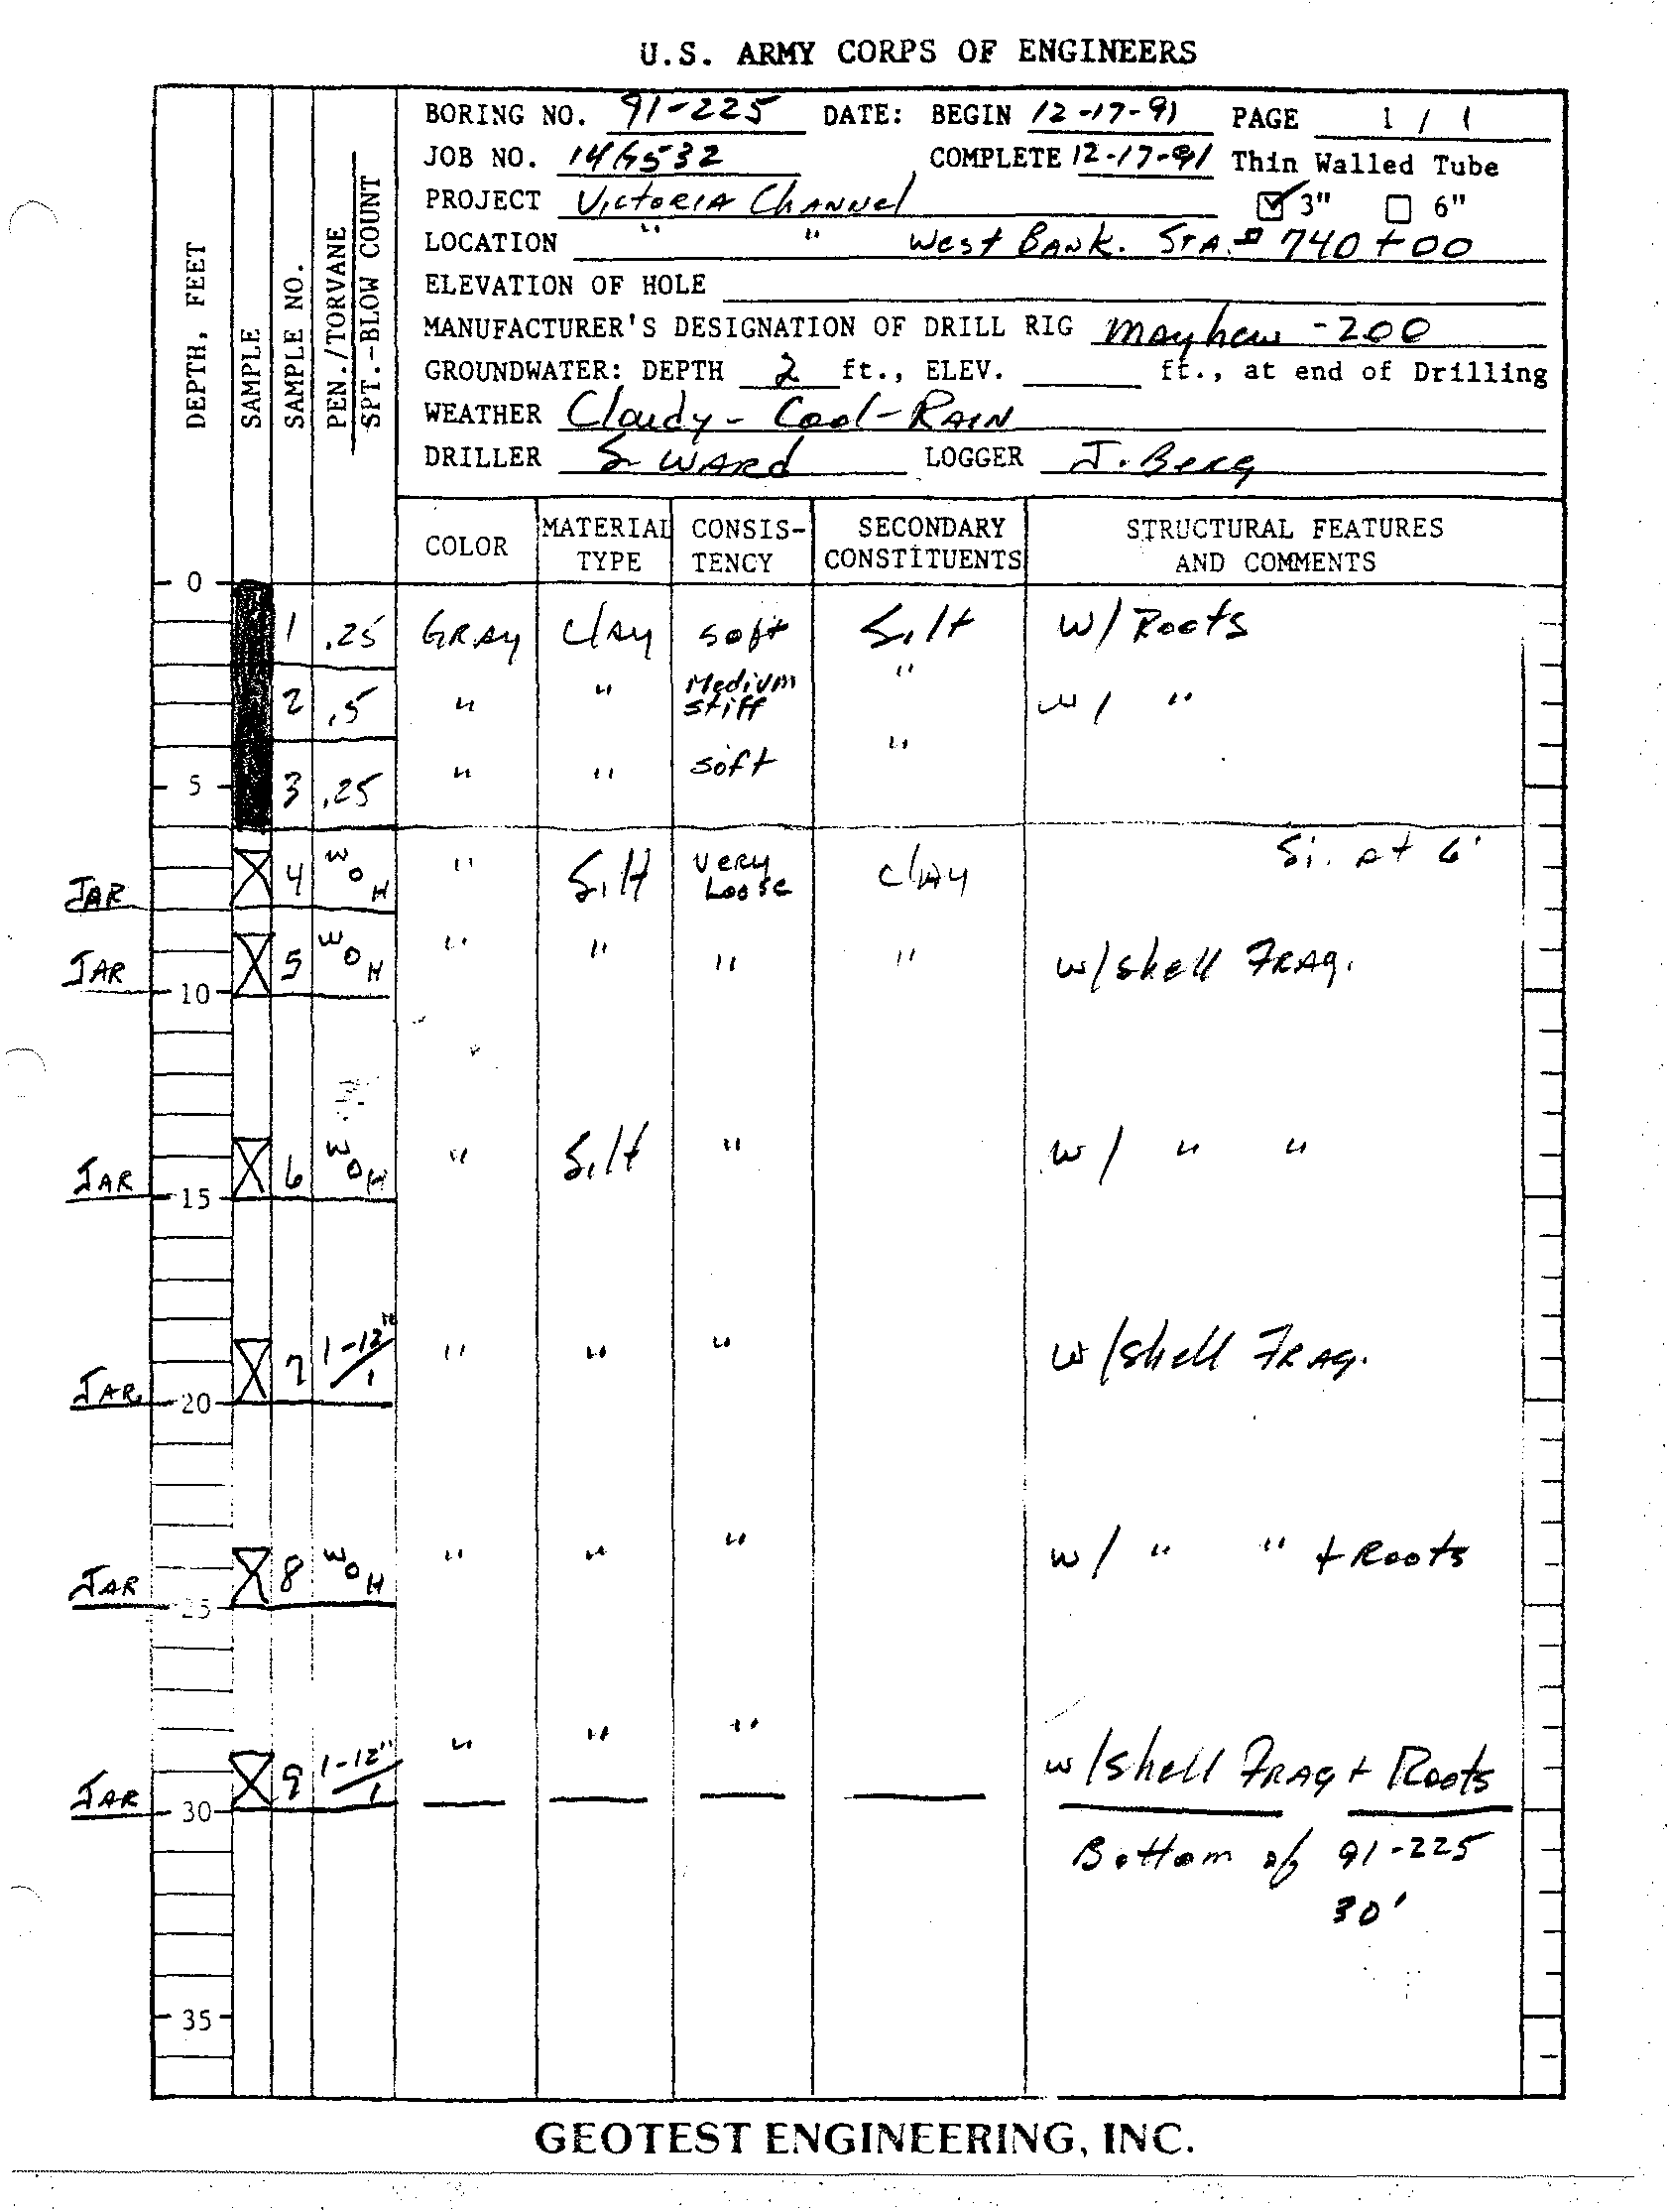 U.S. ARMY CORPS OF ENGINEERS
BORING NO. 91-225 DATE: BEGIN 12-17-91 PAGE 1 / 1
JOB NO. COMPLETE 12-17-91 Thin Walled Tube
PROJECT Victoria Channel 3" 6"
LOCATION " " West Bank. STA. # 740+00
ELEVATION OF HOLE
MANUFACTURER'S DESIGNATION OF DRILL RIG Mayhew -200
GROUNDWATER: DEPTH 2 ft., ELEV. ft., at end of Drilling
WEATHER Cloudy - Cool - RAIN
DRILLER S WARD LOGGER J. Berg
DEPTH, FEET
SAMPLE
SAMPLE NO.
PEN./TORVANE
SPT.-BLOW COUNT
COLOR MATERIAL TYPE CONSIS-TENCY SECONDARY CONSTITUENTS STRUCTURAL FEATURES AND COMMENTS
0
1 .25 GRAY Clay soft Silt w/ Roots
2 .5 " " Medium stiff " w/ "
5 3 .25 " " soft "
Si. at 6'
JAR 4 WOH " Silt very Loose clay
JAR 5 WOH " " " " w/shell FRAG.
10
JAR 6 WOH " Silt " w/ " "
15
JAR 7 1-12"/1 " " " w/shell FRAG.
20
JAR 8 WOH " " " w/ " " + Roots
25
JAR 9 1-12"/1 " " " w/shell FRAG + Roots
30
Bottom of 91-225
30'
35
GEOTEST ENGINEERING, INC.